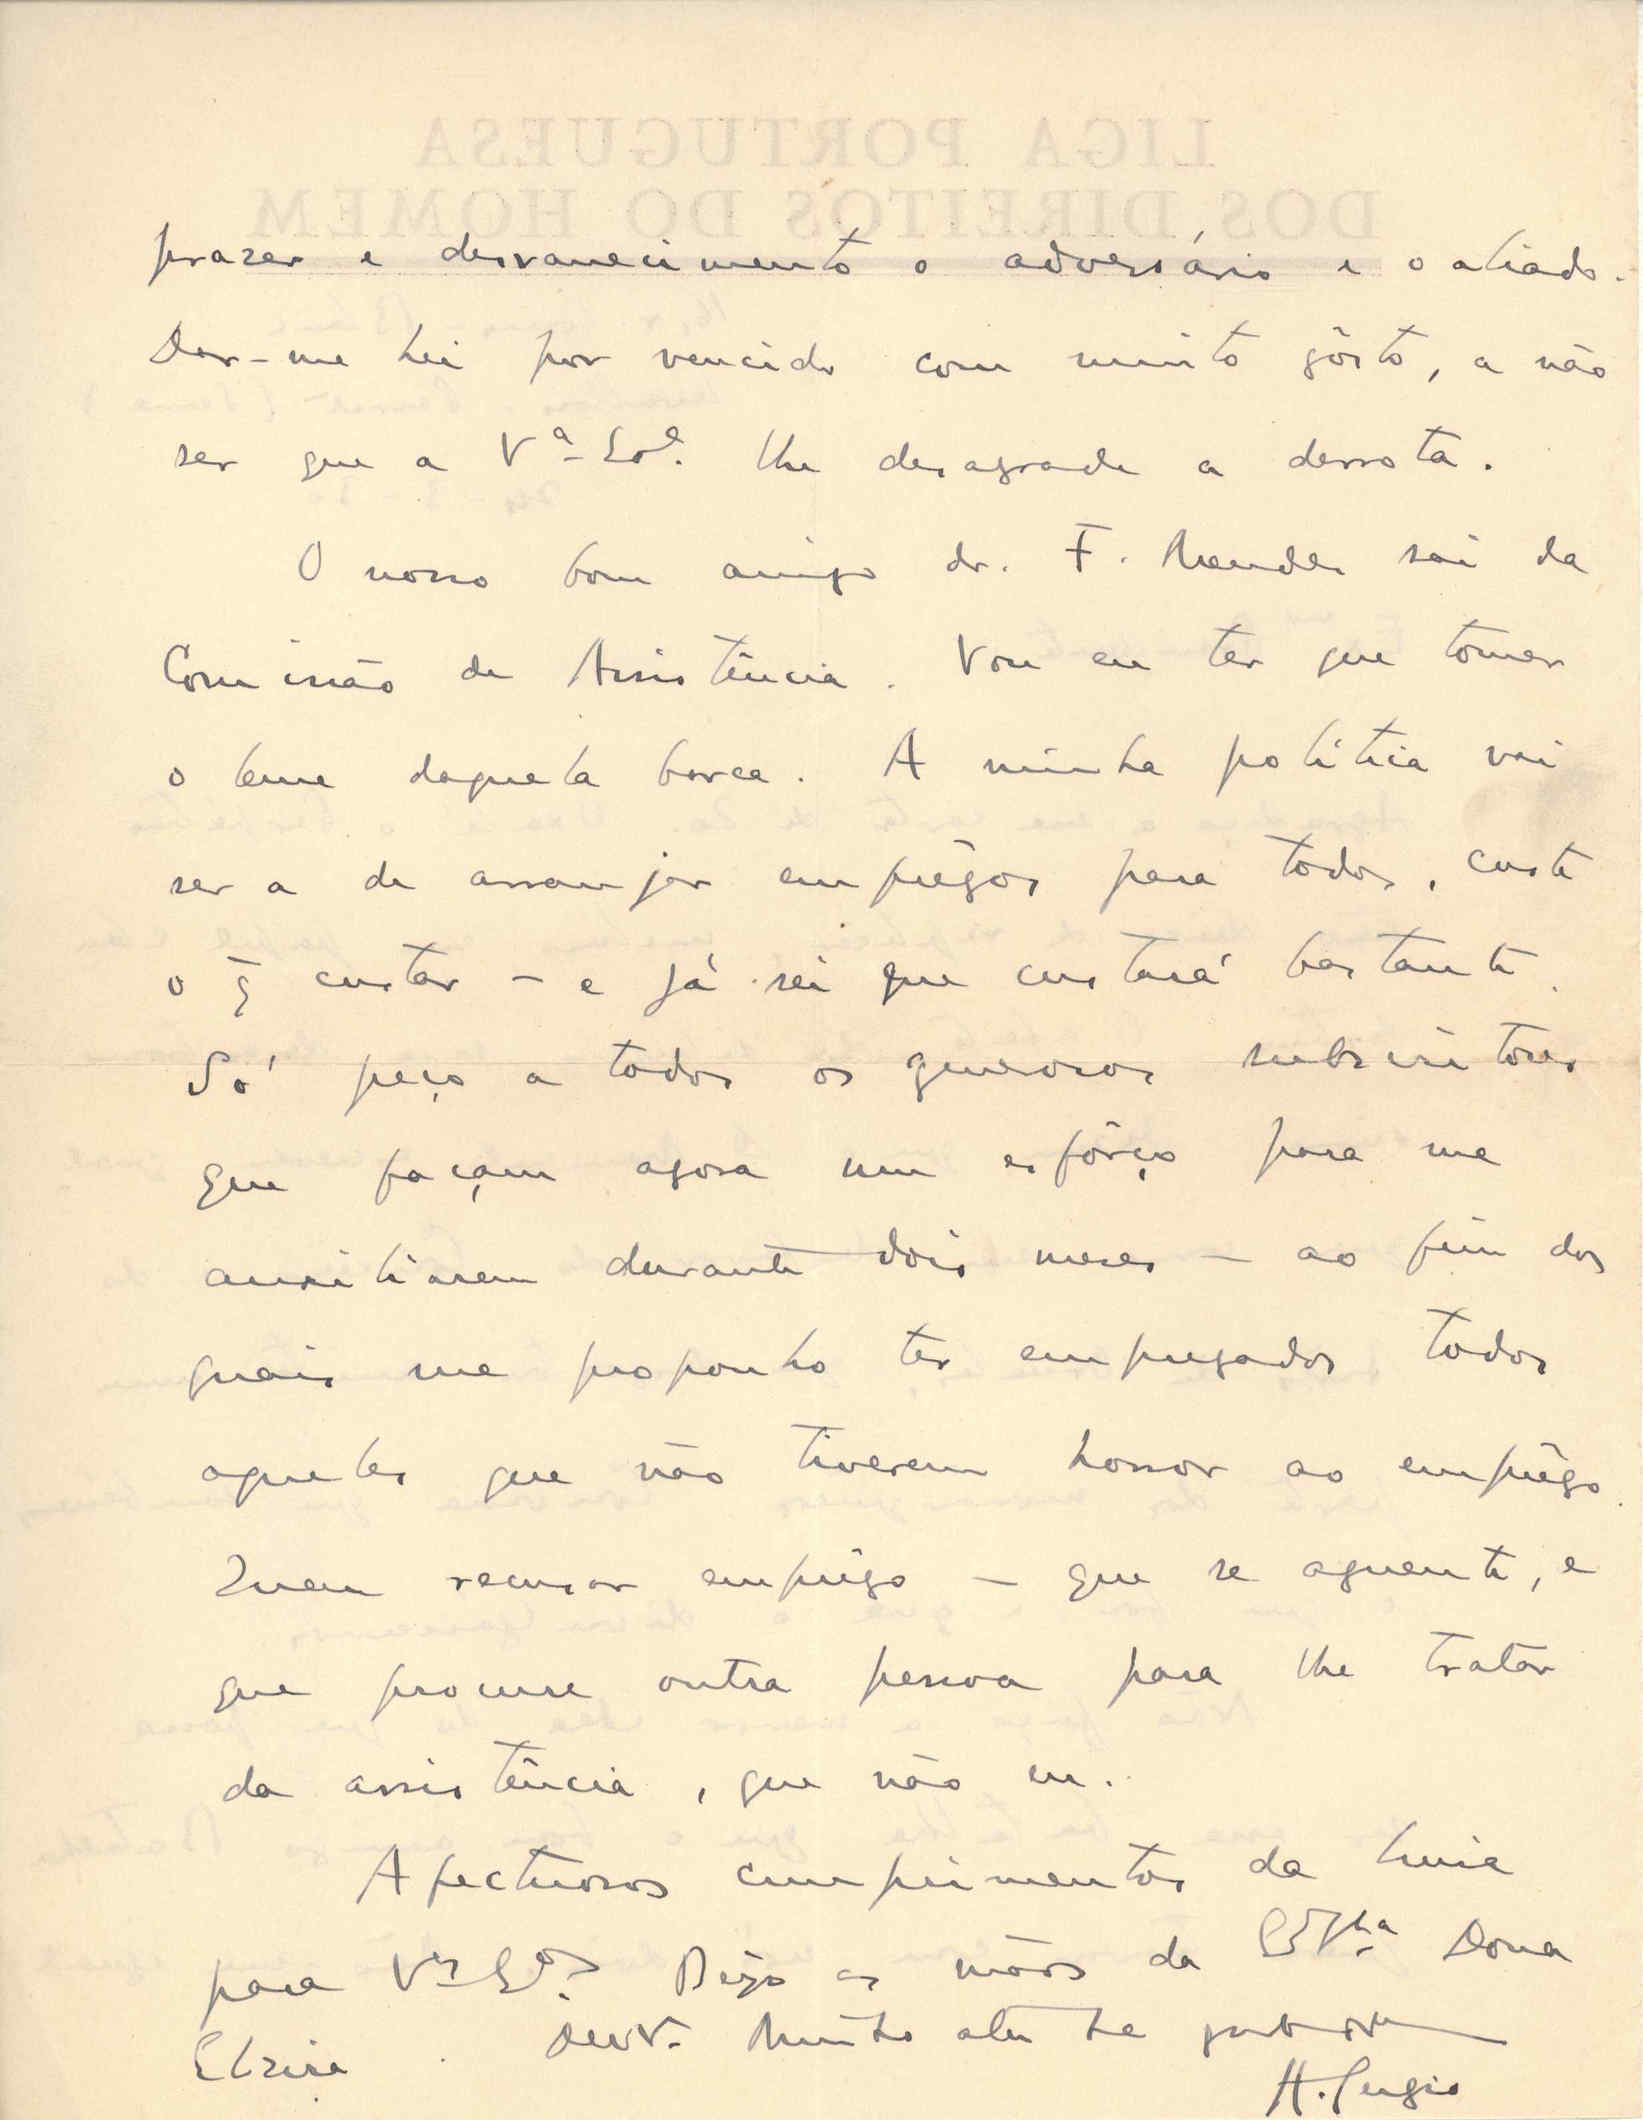 LIGA PORTUGUESA
DOS DIREITOS DO HOMEM
prazer e desvanecimento o adversário e o aliado.
Dar-me hei por vencido com muito gôsto, a não
ser que a Vª Exª. lhe desagrade a derrota.
O nosso bom amigo dr. F. Mendes sai da
Comissão de Assistência. Vou eu ter que tomar
o leme daquela barca. A minha política vai
ser a de arranjar emprêgos para todos, custe
o q̃ custar - e já sei que custará bastante.
Só peço a todos os generosos subscritores
que façam agora um esfôrço para me
auxiliarem durante dois meses - ao fim dos
quais me proponho ter empregados todos
aqueles que não tiverem horror ao emprêgo.
Quem recusar emprêgo - que se aguente, e
que procure outra pessoa para lhe tratar
da assistência, que não eu.
Afectuosos cumprimentos da Luísa
para Vªs Exªs. Beijo as mãos da Dona
Elzira. Muito
A. Sérgio